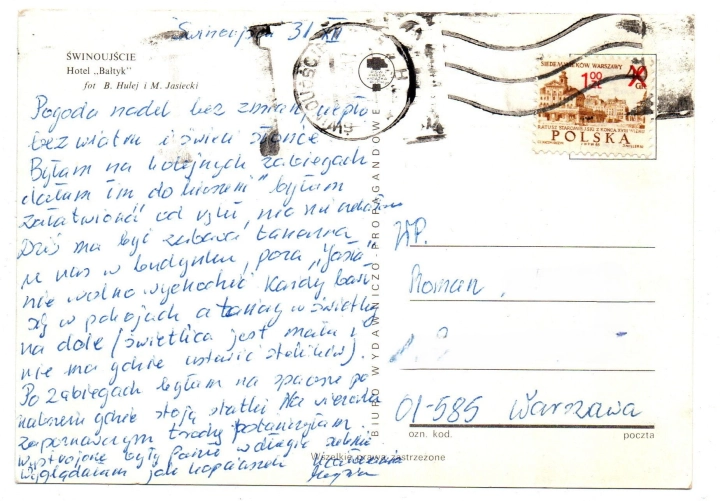 Świnoujście 31 XII
ŚWINOUJŚCIE
Hotel „Bałtyk"
fot B. Hulej i M. Jasiecki
Pogoda nadal bez zmian, ciepło
bez wiatru i świeci słońce
Byłam na kolejnych zabiegach
dałam im do kieszeni" byłam
załatwiona od ręki, nic nie
Dziś ma być zabawa taneczna
u nas w budynku, poza „
nie wolno wychodzić Każdy bawi
się w pokojach a tańczy w świetlicy
na dole (świetlica jest mała i
nie ma gdzie ustawić stolików).
Po zabiegach byłam na spacerze po
nabrzeżu gdzie stoją statki Na wieczorku
zapoznawczym trochę potańczyłam.
wystrojone były Panie w długie suknie
wyglądałam jak kopciuszek
BIURO WYDAWNICZO-PROPAGANDOWE
SIEDEM WIEKÓW WARSZAWY
1,00 ZŁ
GR
RATUSZ STAROMIEJSKI Z KOŃCA XVIII WIEKU
POLSKA
WP.
Roman
01-585 Warszawa
ozn. kod. poczta
Wszelkie prawa zastrzeżone